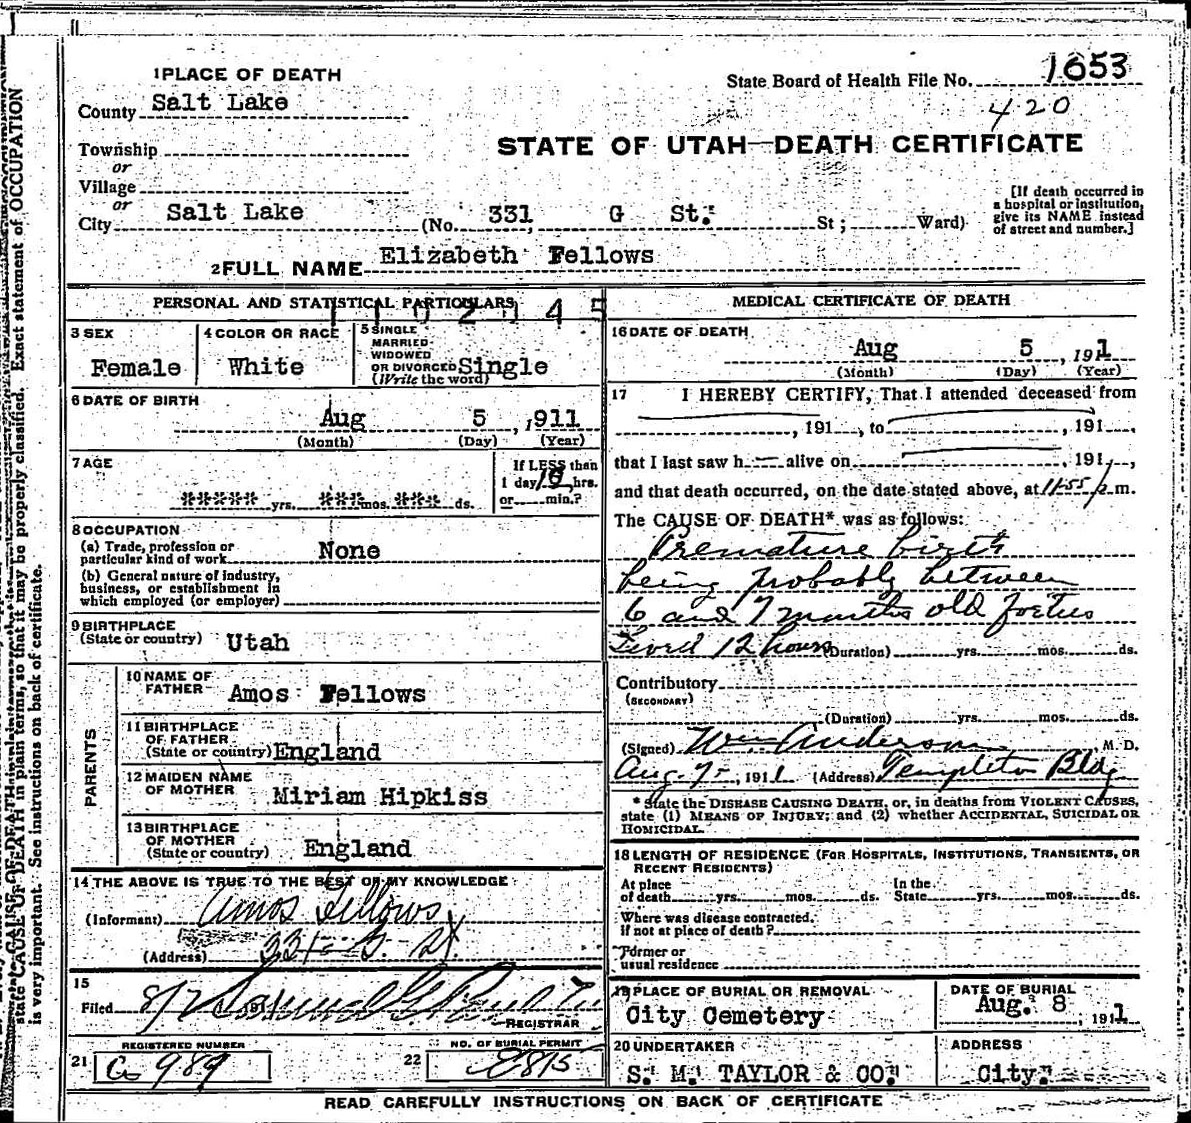 1 PLACE OF DEATH
State Board of Health File No. 1653
County Salt Lake
420
STATE OF UTAH—DEATH CERTIFICATE
Township
or
Village
or
City Salt Lake (No. 331 G St. St; Ward)
[If death occurred in
a hospital or institution,
give its NAME instead
of street and number.]
2 FULL NAME Elizabeth Fellows
PERSONAL AND STATISTICAL PARTICULARS
3 SEX
Female
4 COLOR OR RACE
White
5 SINGLE
MARRIED
WIDOWED
OR DIVORCED Single
(Write the word)
6 DATE OF BIRTH
Aug 5, 1911
(Month) (Day) (Year)
7 AGE
***** yrs. *** mos. *** ds.
If LESS than
1 day hrs.
or min.?
8 OCCUPATION
(a) Trade, profession or
particular kind of work None
(b) General nature of industry,
business, or establishment in
which employed (or employer)
9 BIRTHPLACE
(State or country) Utah
PARENTS
10 NAME OF
FATHER Amos Fellows
11 BIRTHPLACE
OF FATHER
(State or country) England
12 MAIDEN NAME
OF MOTHER Miriam Hipkiss
13 BIRTHPLACE
OF MOTHER
(State or country) England
14 THE ABOVE IS TRUE TO THE BEST OF MY KNOWLEDGE
(Informant) Amos Fellows
(Address) 331 G. St.
15
Filed
REGISTRAR
REGISTERED NUMBER
21 G 989
NO. OF BURIAL PERMIT
22 E815
MEDICAL CERTIFICATE OF DEATH
16 DATE OF DEATH
Aug 5, 1911
(Month) (Day) (Year)
17 I HEREBY CERTIFY, That I attended deceased from
, 191 , to , 191 ,
that I last saw h — alive on , 191 ,
and that death occurred, on the date stated above, at 11:55 p m.
The CAUSE OF DEATH* was as follows:
Premature birth
being probably between
6 and 7 months old foetus
Lived 12 hours (Duration) yrs. mos. ds.
Contributory
(SECONDARY)
(Duration) yrs. mos. ds.
(Signed) Wm Anderson, M. D.
Aug. 7, 1911 (Address) Templeton Bldg
* State the DISEASE CAUSING DEATH, or, in deaths from VIOLENT CAUSES,
state (1) MEANS OF INJURY; and (2) whether ACCIDENTAL, SUICIDAL OR
HOMICIDAL.
18 LENGTH OF RESIDENCE (FOR HOSPITALS, INSTITUTIONS, TRANSIENTS, OR
RECENT RESIDENTS)
At place
of death yrs. mos. ds.
In the
State yrs. mos. ds.
Where was disease contracted.
if not at place of death?
Former or
usual residence
19 PLACE OF BURIAL OR REMOVAL
City Cemetery
DATE OF BURIAL
Aug. 8, 1911
20 UNDERTAKER
S. M. TAYLOR & CO.
ADDRESS
City.
READ CAREFULLY INSTRUCTIONS ON BACK OF CERTIFICATE
state CAUSE OF DEATH in plain terms, so that it may be properly classified. Exact statement of OCCUPATION
is very important. See instructions on back of certificate.